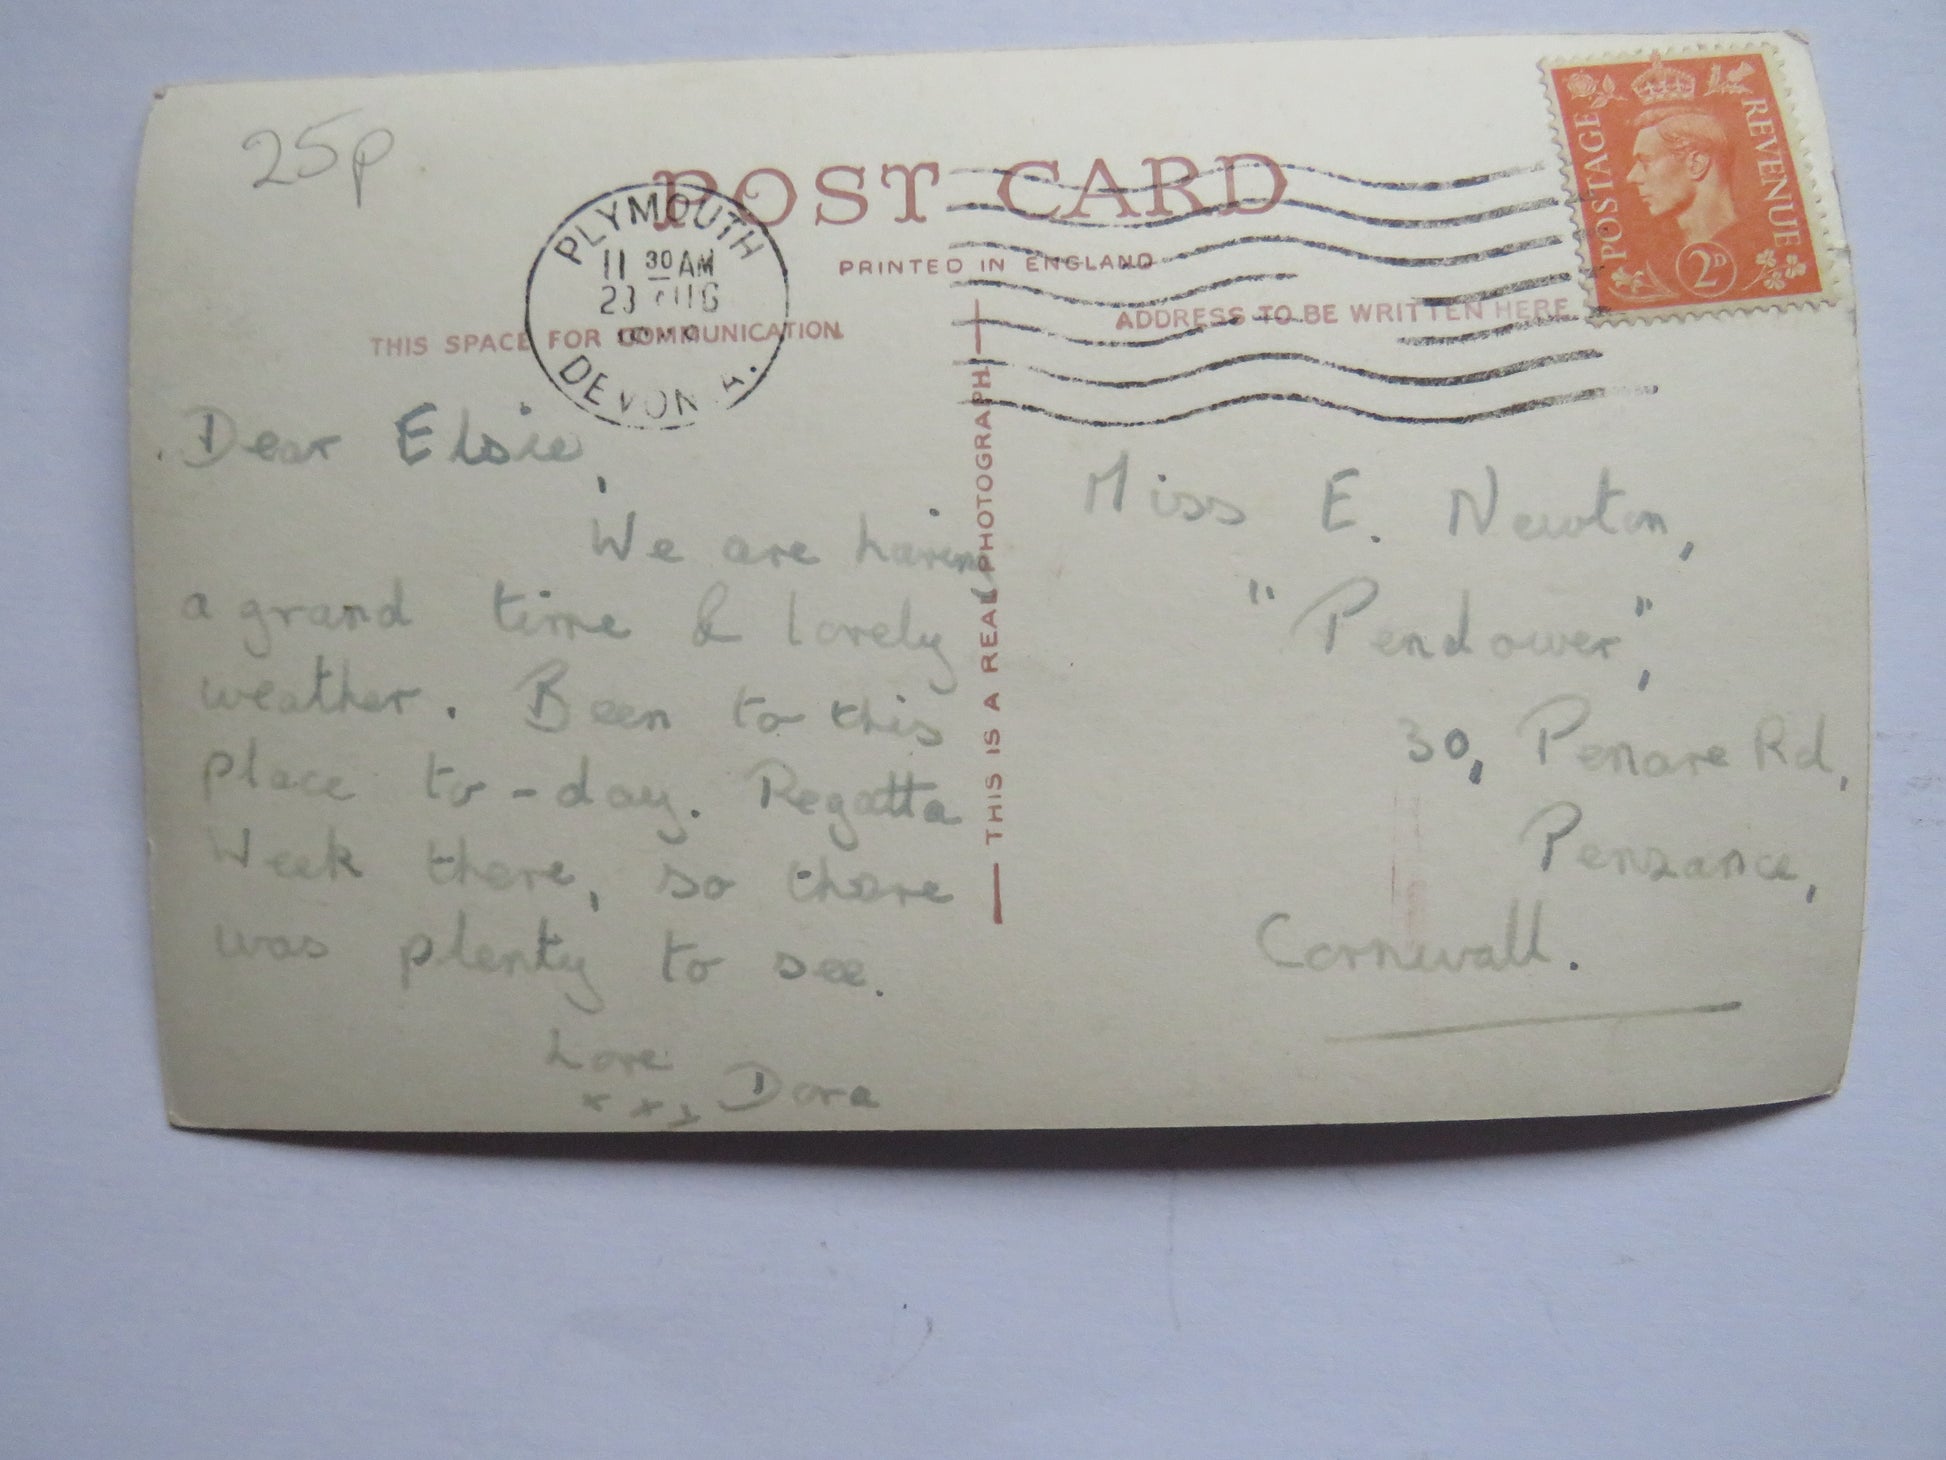 25p
POST CARD
PLYMOUTH
11 30 AM
23 AUG
DEVON A.
PRINTED IN ENGLAND
THIS SPACE FOR COMMUNICATION
ADDRESS TO BE WRITTEN HERE
POSTAGE REVENUE
2D
THIS IS A REAL PHOTOGRAPH
Dear Elsie,
We are having
a grand time & lovely
weather. Been to this
place to-day. Regatta
Week there, so there
was plenty to see.
Love
x x x Dora
Miss E. Newton,
"Pendower",
30, Penare Rd,
Penzance,
Cornwall.